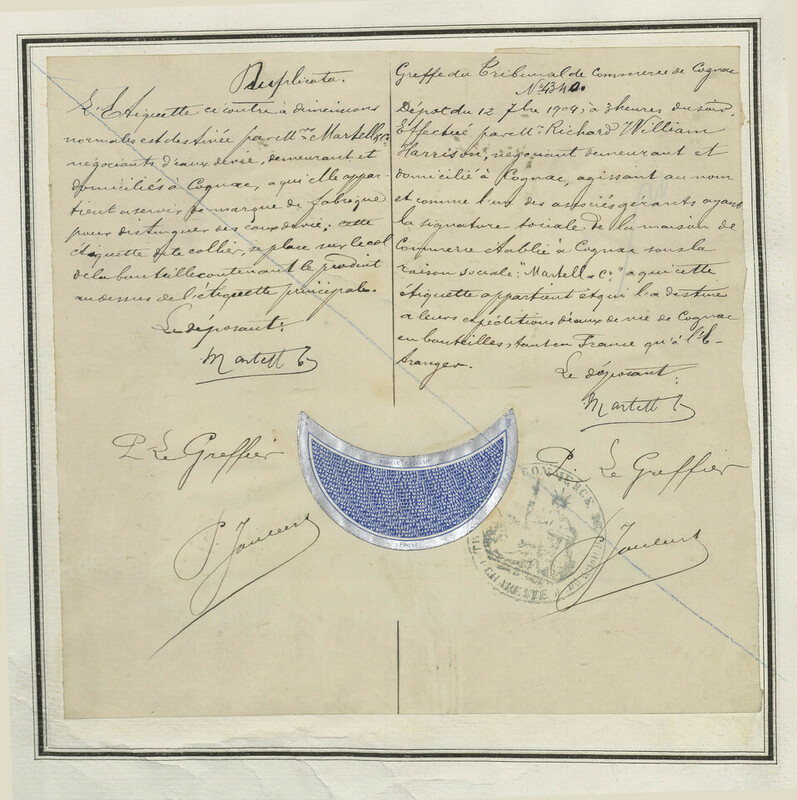 Duplicata.
L'Etiquette ci contre à dimensions
normales est destinée par M.rs Martell & Co.
négociants d'eaux de vie, demeurant et
domiciliés à Cognac, à qui elle appar-
tient a servir de marque de fabrique
pour distinguer des eaux de vie; cette
étiquette dite collier, se place sur le col
de la bouteille contenant le produit
au dessus de l'étiquette principale.
Le déposant:
Martell & Co
P. Le Greffier
Greffe du Tribunal de Commerce de Cognac
No 4340.
Dépot du 12 7bre 1904, à 3 heures du soir.
Effectué par M.r Richard William
Harrison, négociant demeurant et
domicilié à Cognac, agissant au nom
et comme l'un des associés gérants ayant
la signature sociale de la maison de
Commerce établie à Cognac sous la
raison sociale "Martell & Co" a qui cette
étiquette appartient et qui l'a destine
a leurs expéditions d'eaux de vie de Cognac
en bouteilles, tant en France qu'à l'E-
tranger.
Le déposant:
Martell & Co
P. Le Greffier
COMMERCE DE COGNAC
CHARENTE